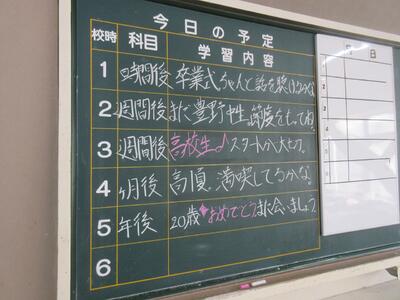 今日の予定
校時 科目 学習内容
1 時間後 卒業式、ちゃんと話を聴けるかな。
2 週間後 まだ豊野中生。節度をもってね。
3 週間後 高校生♪ スタートが大切。
4 ヶ月後 高1夏、満喫してるかな。
5 年後 20歳 おめでとう また会いましょう。
6
月 日